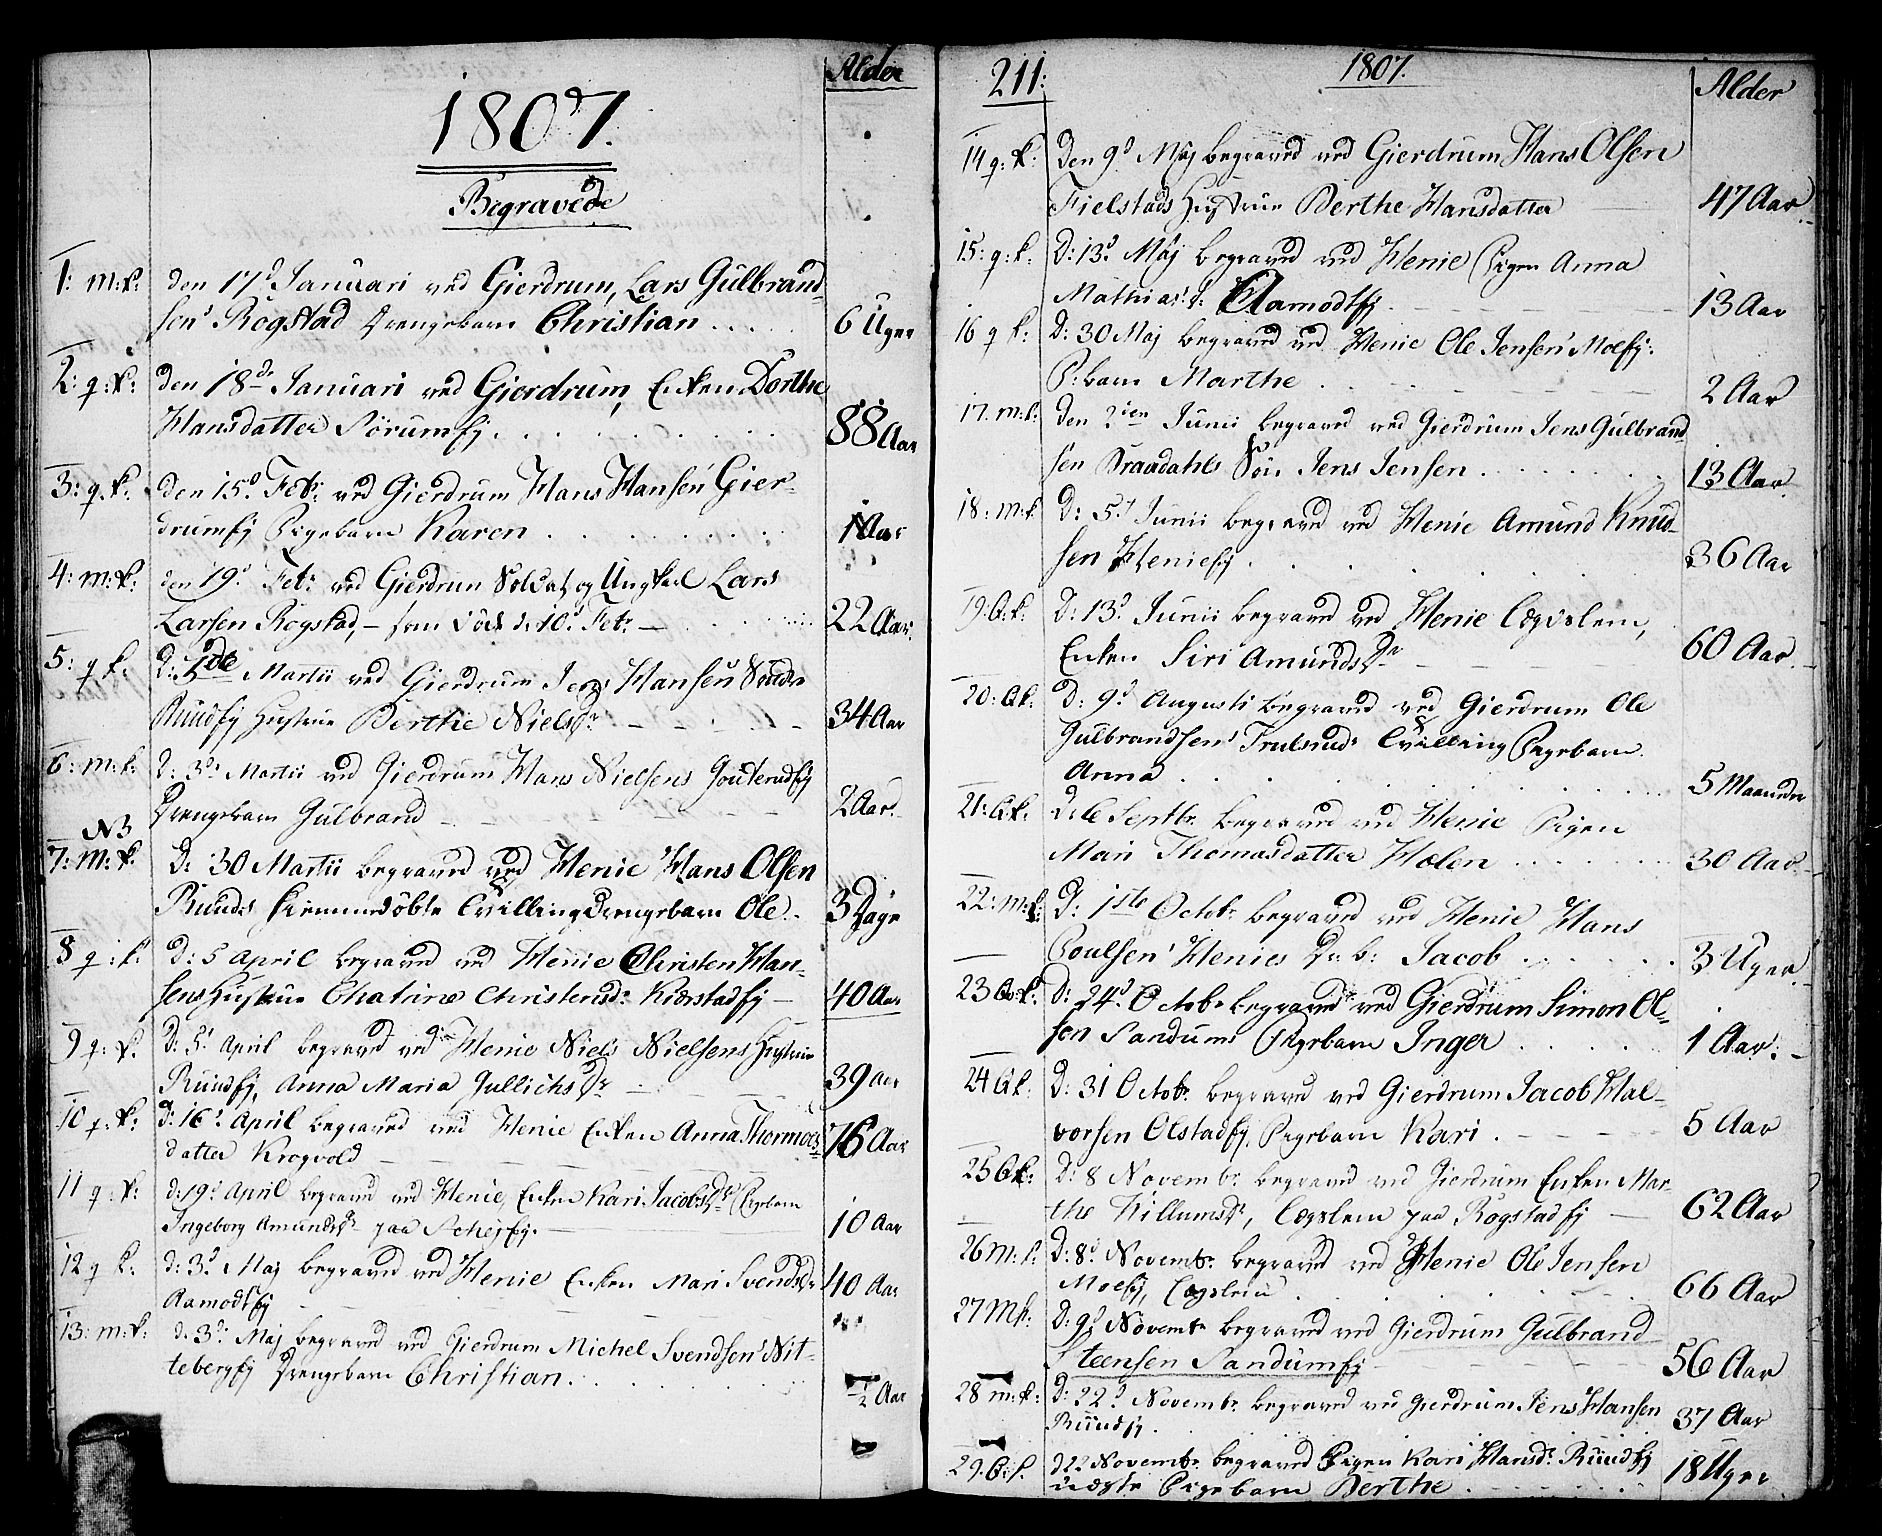 Alder
1807.
Begravede
1: m: k: den 17d Januari ved Gierdrum, Lars Gulbrand-
sens Rogstad Drengebarn Christian . . . . 6 Uger
2: q: k: den 18de Januari ved Gierdrum, Enken Dorthe
Hansdatter Sørumsej. . . . . . . . 88 Aar
3: q. k: den 15d Febr: ved Gierdrum Hans Hansen Gier-
drumsej Pigebarn Karen . . . . . . . 1 Aar
4: m: k: den 19d Febr: ved Gierdrum Soldat og Ungkarl Lars
Larsen Rogstad, – som döde d: 10d Febr. – . . . 22 Aar.
5: q k: D: 1de Martii ved Gierdrum Jens Hansen Søndre
Ruudsej Hustrue Berthe Nielsdr – – – 34 Aar
6: m: k: D: 3d: Martii ved Gierdrum Hans Nielsens Gouterudsej
Drengebarn Gulbrand – – – 2 Aar.
N3
7: m: k: D: 30 Martii begraved ved Henie Hans Olsen
Ruuds hiemmedöbte Tvilling Drengebarn Ole. 3 Dage
8 q: k: D: 5 April begraved ved Henie Christen Han-
sens Hustrue Chatrine Christensd: Kiærstadsej – 40 Aar
9 q: k. D: 5d April begraved ved Henie Niels Nielsens Hustrue
Ruudsej, Anna Maria Gullichsdr – 39 Aar
10 q: k: D: 16d April begraved ved Henie Enken Anna Thormods-
datter Krogvold – – – 76 Aar
11 q: k: d: 19d April begraved ved Henie, Enken Kari Jacobsdr Pigebarn
Ingeborg Amundsdr paa Schejsej. – 10 Aar
12 q k: d: 3d Maj begraved ved Henie Enken Mari Svendsdr
Aamodtsej – – 40 Aar
13: m: k: d: 3d: Maj begraved ved Gierdrum Michel Svendsens Nit-
tebergsej Drengebarn Christian. . . . . . ½ Aar
211: 1807. Alder
14 q: k: Den 9d Maj begraved ved Gierdrum Hans Olsen
Fielstads Hustrue Berthe Hansdatter – 47 Aar.
15: q: k. D: 13d Maj begraved ved Henie Pigen Anna
Mathias d: Aamodtsej. – – – 13 Aar
16 q k: D: 30 Maj begraved ved Henie Ole Jensens Moesej:
P: barn Marthe . . – – – 2 Aar
17. m. k: den 2den Junii begraved ved Gierdrum Jens Gulbrand
sen Braadahls Sön Jens Jensen . . . . . . 13 Aar.
18: m: k D: 5d Junii begraved ved Henie Amund Knud-
sen Heniesej. . . . . . . . 36 Aar
19: Q: k: D: 13d Junii begraved ved Henie Lægdslem,
Enken Siri Amundsdr – – – 60 Aar
20: Q k: D: 9d Augusti begraved ved Gierdrum Ole
Gulbrandsens Trulsruds Tvilling Pigebarn.
Anna . . . . . . . 5 Maaneder
21: Q k: D: 6 Septbr. begraved ved Henie Pigen
Mari Thomasdatter Holen . . . . . . 30 Aar.
22: m: k: D: 1ste Octobr begraved ved Henie Hans
Poulsens Henies Dr: b: Jacob . . . . . 3 Uger
23 Q: k: D: 24d Octobr begraved ved Gierdrum Simon Ol-
sen Sandums Pigebarn Inger . . . . . 1 Aar.
24 Q k: D: 31 Octobr. begraved ved Gierdrum Jacob Hal-
vorsen Olstadsej, Pigebarn Kari . – – – 5 Aar
25 Q k: D: 8 Novembr. begraved ved Gierdrum Enken Mar-
the Willumsdr, Lægslem paa Rogstadsej – 62 Aar
26 m: k. D: 8d Novembr. begraved ved Henie Ole Jensen
Moesej, Lægslem . . . . . . 66 Aar
27 M k: D: 9d Novembr begraved ved Gierdrum Gulbrand
Steensen Sandumsej – – 56 Aar
28 m: k: D: 22d Novembr. begraved ved Gierdrum Jens Hansen
Ruudsej. . . . . 37 Aar
29. Q: k. d 22 Novembr. begraved Pigen Kari Hansdr: Ruudsej
uægte Pigebarn Berthe . . . . . 18 Uger